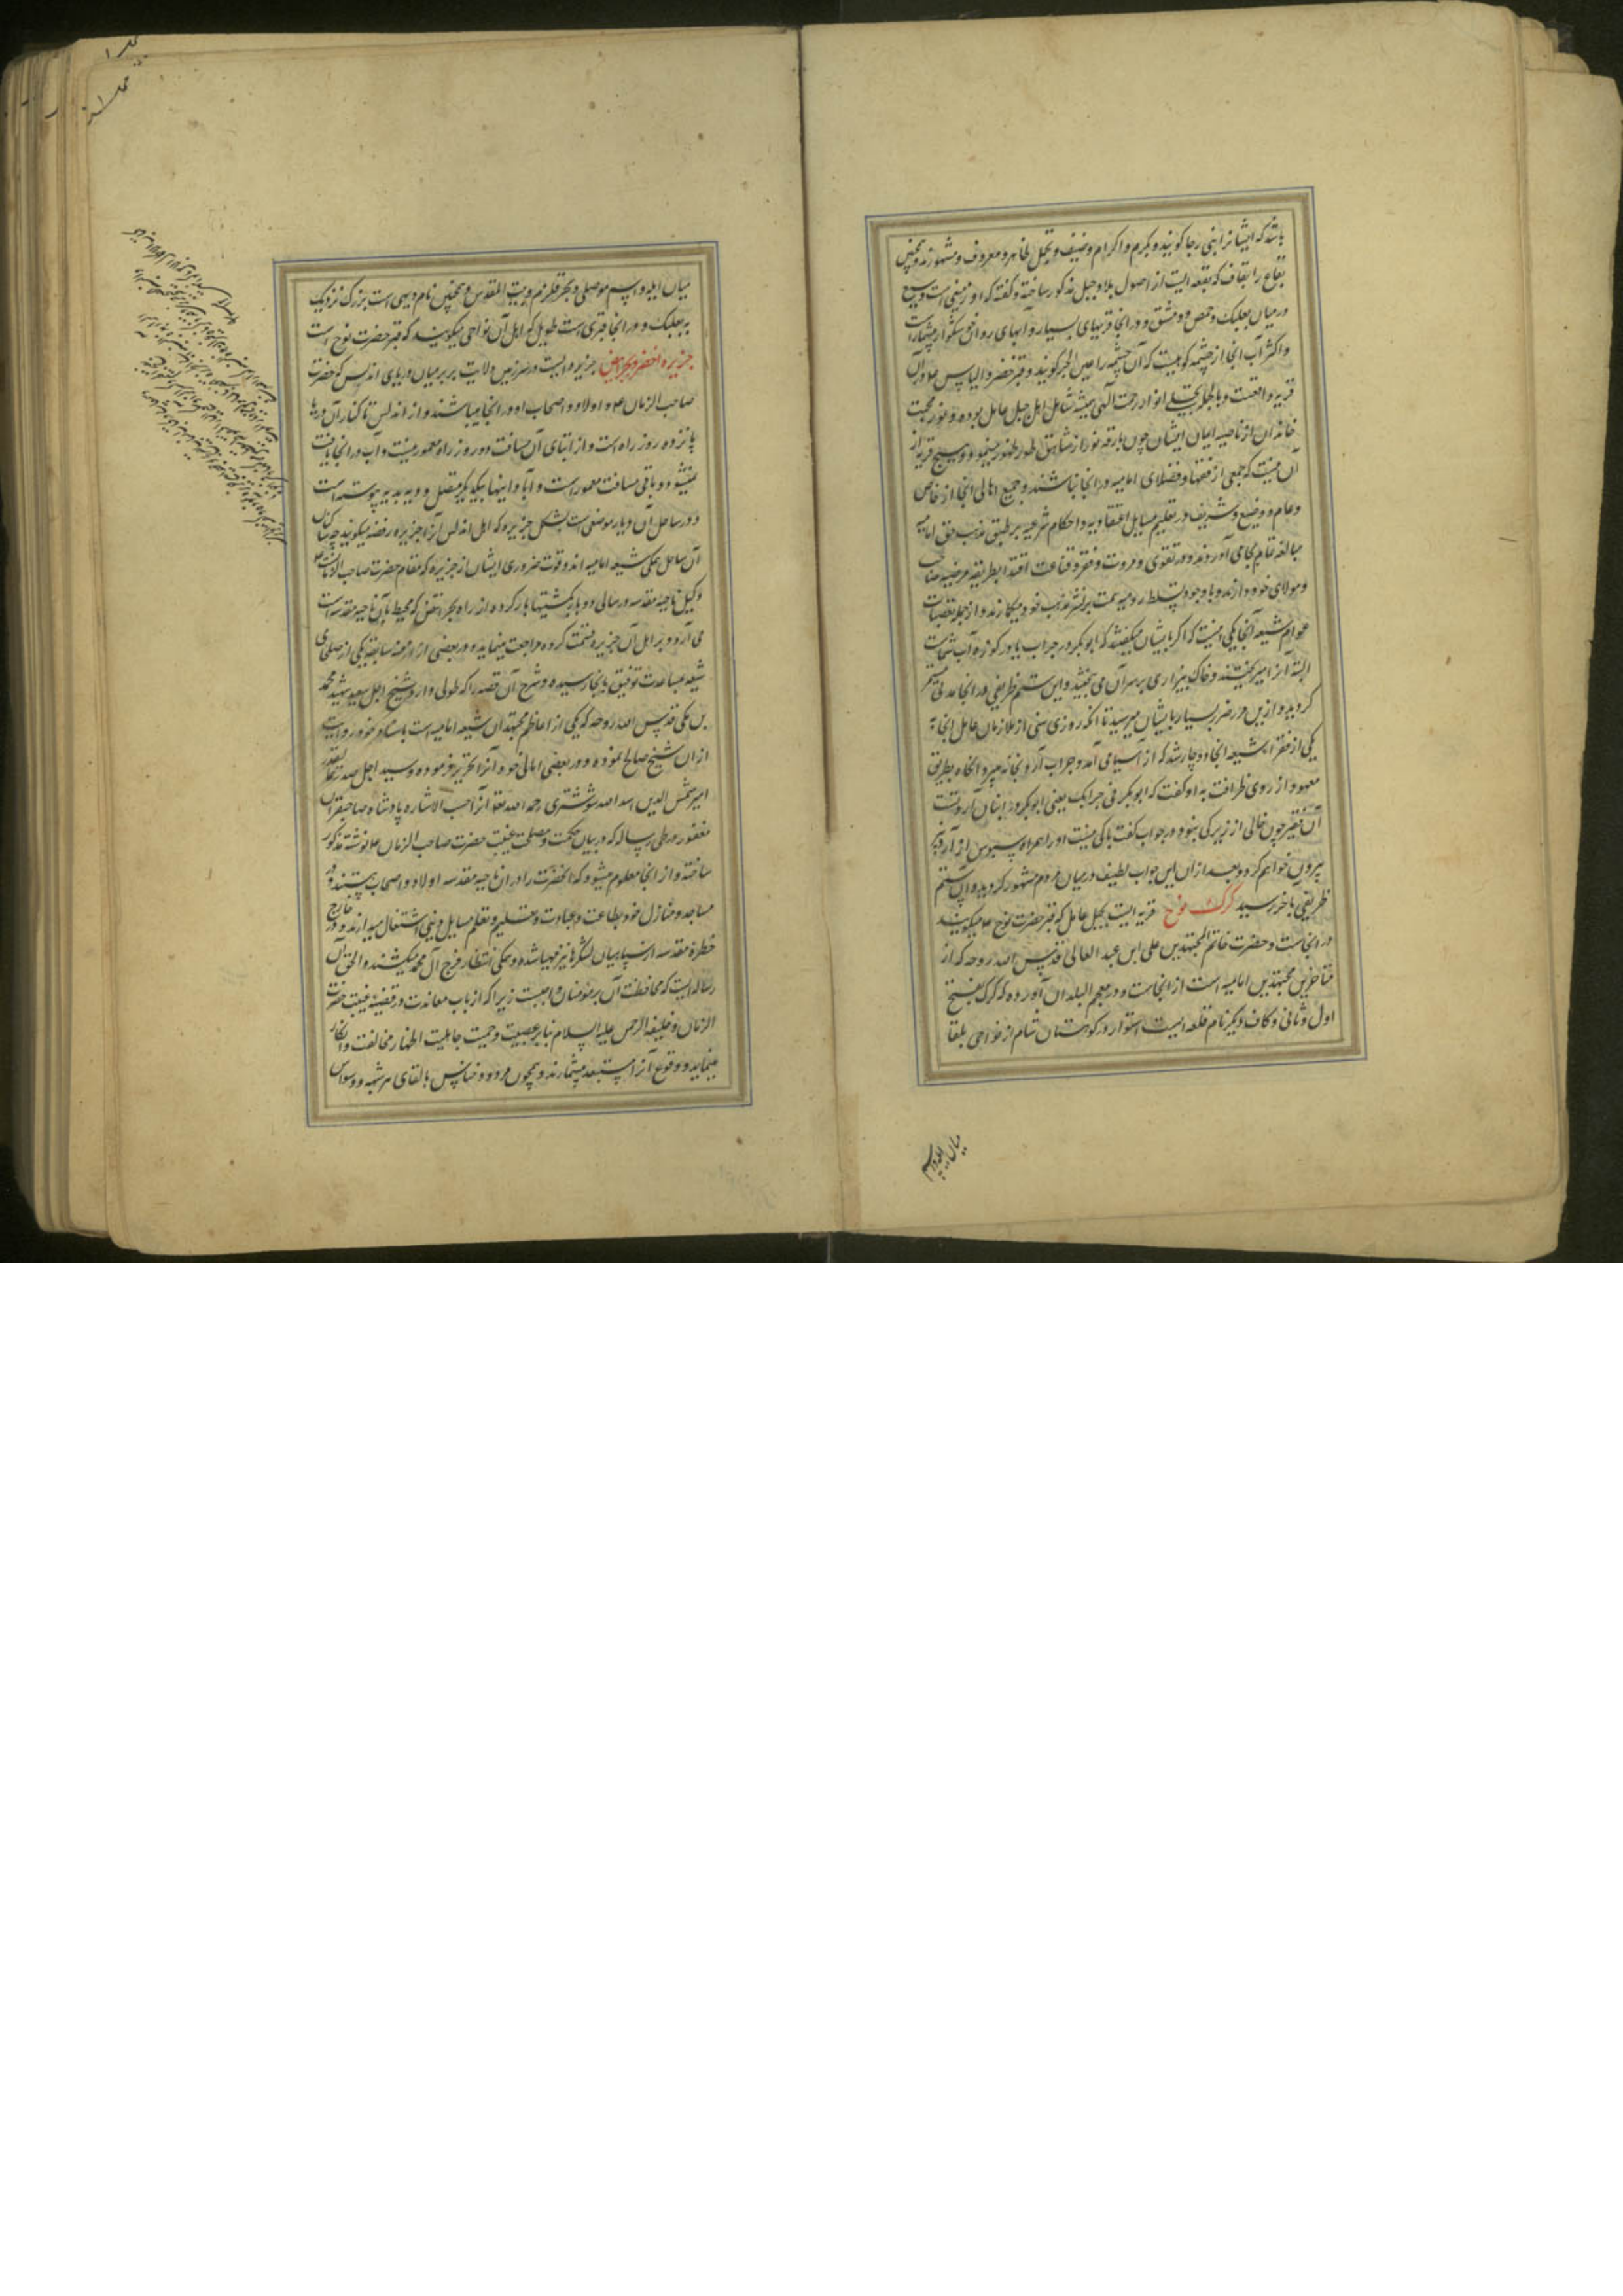 باشد که ایشانرا بنی رجا گویند و بکرم و اکرام وضیف و تجمل ظاهر و معروف و مشهورند و همچنین
بقاع را بقاف که بقعه ایست از اصول بلاد جبل مذکور ساخته و گفته که او زمینی است وسیع
در میان بعلبک و حمص و دمشق و در انجا قریهای بسیار و آبهای روان خوشگوار بیشمار است
و اکثر آب انجا از چشمه کوهیست که آن چشمه را عین الجر گویند و قبر حضرت الیاس ع در آن
قریه واقعست و بالجمله تجلی انوار رحمت الهی همیشه شامل اهل جبل عامل بوده و نور محبت
خاندان از ناصیه ایمان ایشان چون بارقه نور از شاهق طور ظهور مینمود و هیچ قریه از
آن نیست که جمعی از فقها و فضلای امامیه در انجا نباشند و جمیع اهالی انجا از خاص
و عام و وضیع و شریف در تعلیم مسایل اعتقادیه و احکام شرعیه بر طبق مذهب حق امامیه
مبالغه تمام بجا می آورند و در تقوی و مروت و فقر و قناعت اقتدا بطریقه مرضیه صاحب
و مولای خود دارند و با وجود تسلط رومیه همت بر نشر مذهب خود میگمارند و از جمله تعصبات
عوام شیعه آنجا یکی اینست که اگر با ایشان میگفتند که ابوبکر در جراب یا در کوزه آب شماست
البته آنرا میریختند و خاک بیزاری بر سر آن می بیختند و این ستم ظریفی در انجا مدتی مستمر
گردید و ازین ممر ضرر بسیار بایشان میرسید تا آنکه روزی سنی از ملازمان عامل انجا به
یکی از فقراء شیعه انجا دوچار شد که از آسیا می آمد و جراب آرد بخانه میبرد انگاه بطریق
معهود از روی ظرافت به او گفت که ابوبکر فی جرابک یعنی ابوبکر در انبان آرد تست
آن فقیر چون خالی از زیرکی نبود در جواب گفت باکی نیست او را همراه سبوس از آرد
بیرون خواهم کرد و بعد از ان این جواب لطیف در میان مردم مشهور گردید و آن ستم
ظریفی باخر رسید کرک نوح قریه ایست بجبل عامل که قبر حضرت نوح ع میگویند
در انجاست و حضرت خاتم المجتهدین علی ابن عبد العالی قدس الله روحه که از
متاخرین مجتهدین امامیه است از انجاست و در معجم البلدان آورده که کرک بفتح
اول و ثانی و کاف دیگر نام قلعه ایست استوار در کوهستان شام از نواحی بلقا
میان ایله و اسم
میان ایله و اسم موصلی و بحر قلزم و بیت المقدس و همچنین نام دیهی است بزرگ نزدیک
به بعلبک و در انجا قبری است طویل که اهل آن نواحی میگویند که قبر حضرت نوح است
جزیره اخضر و بحر ابیض جزیره ایست در سرزمین ولایت بربر میان دریای اندلس که حضرت
صاحب الزمان ع و اولاد و اصحاب او در انجا میباشند و از اندلس تا کنار آن دریا
پانزده روز راه است و از ابتدای آن مسافت دو روز راه معمور نیست و آب در انجا یافت
نمیشود و باقی مسافت معمور است و آبادانیها بیکدیگر متصل و دیه بدیه پیوسته است
و در ساحل آن دریا موضعی است بشکل جزیره که اهل اندلس آنرا جزیره رفضه میگویند چه ساکنان
آن ساحل همگی شیعه امامیه اند و قوت ضروری ایشان از جزیره که مقام حضرت صاحب الامر است
وکیل ناحیه مقدسه در سالی دو بار بکشتیها بار کرده از راه بحر ابیض که محیط بآن ناحیه مقدسه است
می آرد و بر اهل آن جزیره قسمت کرده مراجعت مینماید و در بعضی از ازمنه سابقه یکی از صلحای
شیعه بمساعدت توفیق بانجا رسیده و شرح آن قصه را که طولی دارد شیخ اجل سعید شهید محمد
بن مکی قدس الله روحه که یکی از اعاظم مجتهدان شیعه امامیه است باسناد خود روایت
از ان شیخ صالح نموده و در بعضی امالی خود آنرا تحریر فرموده و سید اجل صدر
امیر شمس الدین اسد الله شوشتری رحمه الله تعالی آنرا حسب الاشاره پادشاه صاحبقران
مغفور در طی رساله که در بیان حکمت و مصلحت غیبت حضرت صاحب الزمان ع نوشته مذکور
ساخته و از انجا معلوم میشود که آنحضرت را در ان ناحیه مقدسه اولاد و اصحاب هستند و در
مساجد و منازل خود بطاعت و عبادت و تعلیم و تعلم مسایل دینی اشتغال میدارند و در خارج
خطره مقدسه از سپاهیان لشکرها نیز مهیا شده و همگی انتظار فرج آل محمد میکشند و الحق آن
رساله ایست که محافظت آن بر مومنان واجبست زیرا که از باب معاندت در قضیه غیبت حضرت
الزمان و خلیفه الرحمن علیه السلام بنا بر عصبیت و حمیت جاهلیت اظهار مخالفت و انکار
مینمایند و وقوع آنرا مستبعد میشمارند و همچون مردود خناس بالقای هر شبهه و وسواس